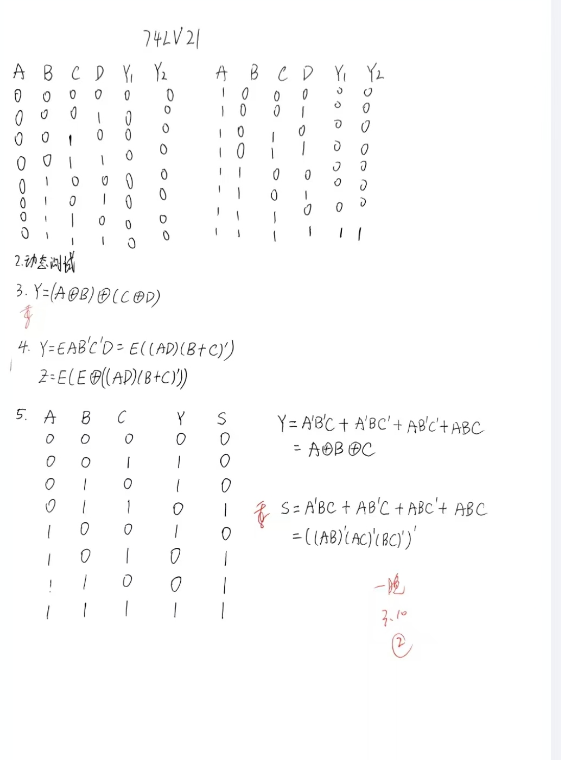 74LV21
A B C D Y₁ Y₂ A B C D Y₁ Y₂
0 0 0 0 0 0 1 0 0 0 0 0
0 0 0 1 0 0 1 0 0 1 0 0
0 0 1 0 0 0 1 0 1 0 0 0
0 0 1 1 0 0 1 0 1 1 0 0
0 1 0 0 0 0 1 1 0 0 0 0
0 1 0 1 0 0 1 1 0 1 0 0
0 1 1 0 0 0 1 1 1 0 0 0
0 1 1 1 0 0 1 1 1 1 1 1
2.动态测试
3. Y=(A⊕B)⊕(C⊕D)
4. Y=EAB'C'D=E((AD)(B+C)')
Z=E(E⊕((AD)(B+C)'))
5. A B C Y S
0 0 0 0 0
0 0 1 1 0
0 1 0 1 0
0 1 1 0 1
1 0 0 1 0
1 0 1 0 1
1 1 0 0 1
1 1 1 1 1
Y=A'B'C+A'BC'+AB'C'+ABC
=A⊕B⊕C
S=A'BC+AB'C+ABC'+ABC
=((AB)'(AC)'(BC)')'
3.10
②